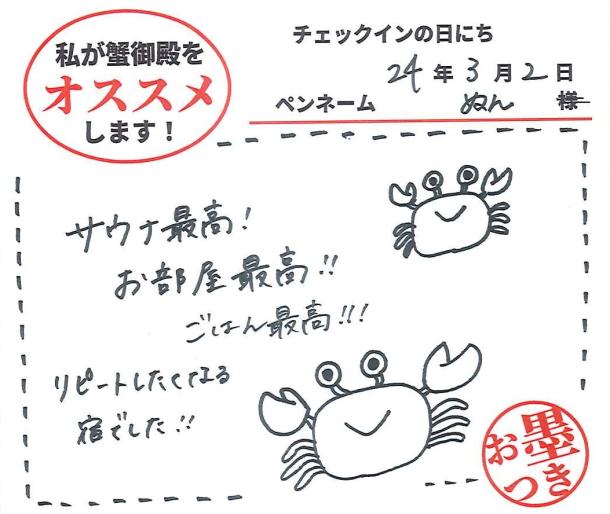 私が蟹御殿を
オススメ
します！
チェックインの日にち
24年3月2日
ペンネーム ぬん 様
サウナ最高!
お部屋最高!!
ごはん最高!!!
リピートしたくなる
宿でした!!
お墨つき